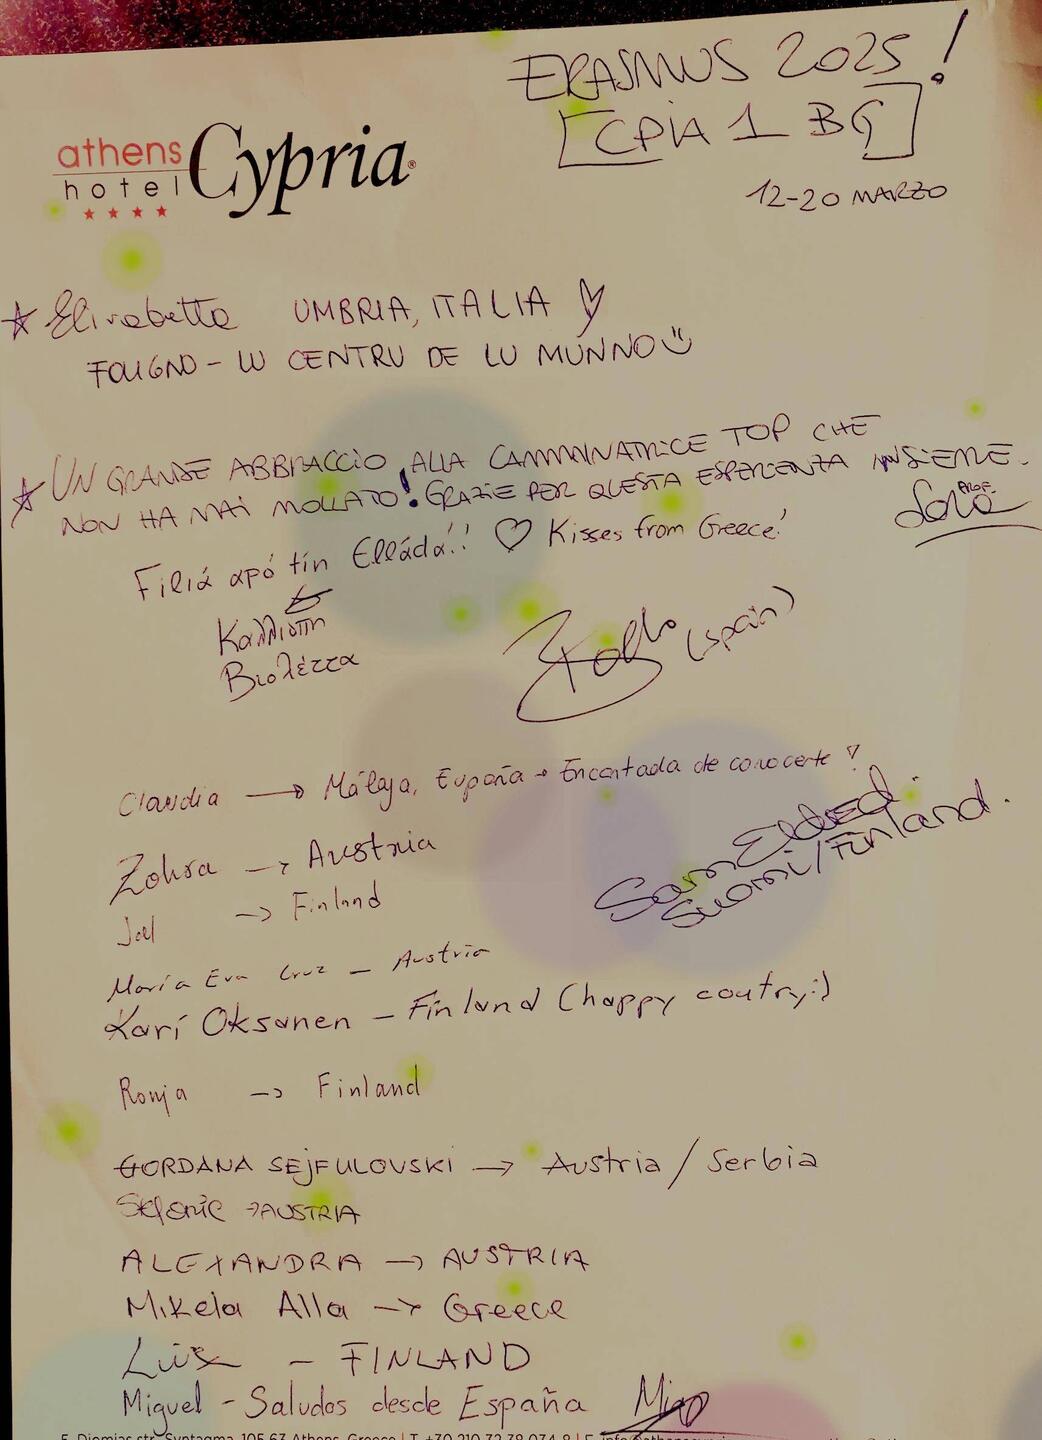 ERASMUS 2025!
CPIA 1 BG
12-20 MARZO
athens
hotel
Cypria®
Elisabetta UMBRIA, ITALIA
FOLIGNO - LU CENTRU DE LU MUNNO
UN GRANDE ABBRACCIO ALLA CAMMINATRICE TOP CHE
NON HA MAI MOLLATO! GRAZIE PER QUESTA ESPERIENZA INSIEME.
PROF.
Filiá apó tin Elláda!! Kisses from Greece!
Καλλιόπη
Βιολέττα
(spain)
Claudia → Málaga, España → Encantada de conocerte
Zohra → Austria
Sam
Suomi/Finland.
→ Finland
María Eva Cruz - Austria
Kari Oksanen - Finland (happy coutry:)
Ronja → Finland
GORDANA SEJFULOVSKI → Austria / Serbia
→ AUSTRIA
ALEXANDRA → AUSTRIA
Mikela Alla → Greece
- FINLAND
Miguel - Saludos desde España